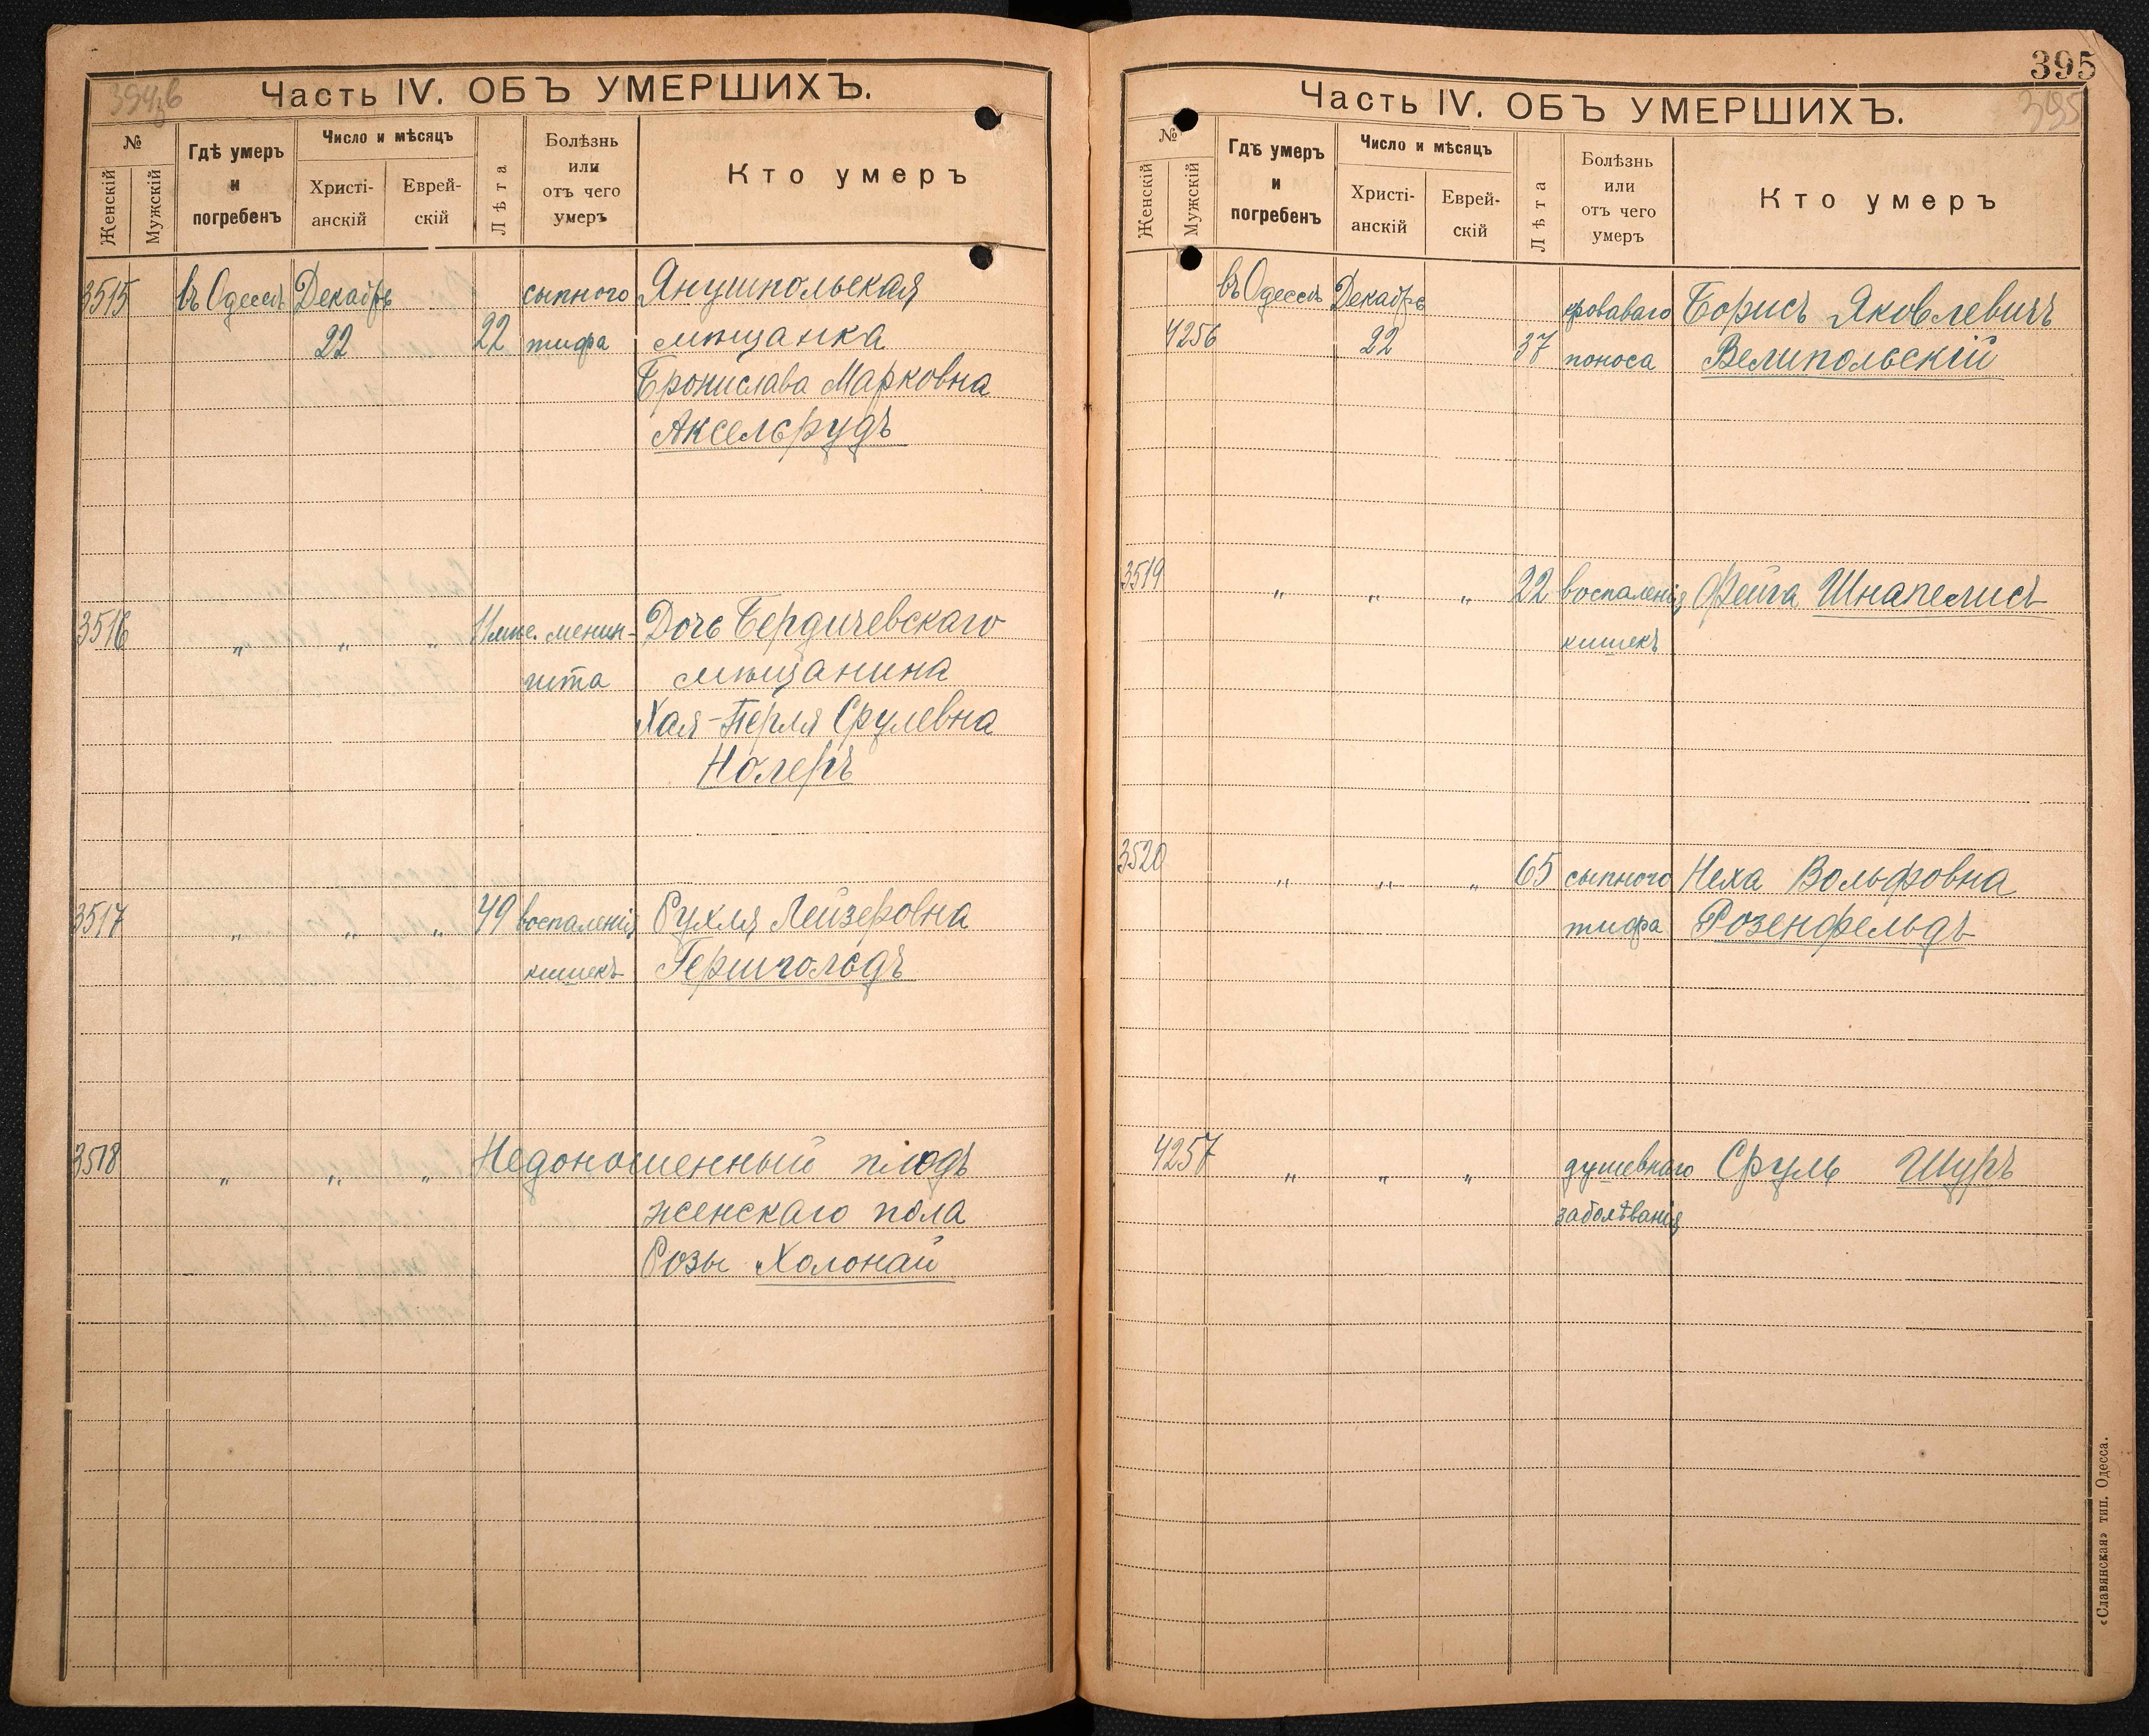 394об
Часть IV. ОБЪ УМЕРШИХЪ.
№
Женскій
Мужскій
Гдѣ умеръ
и
погребенъ
Число и мѣсяцъ
Христі-
анскій
Еврей-
скій
Лѣта
Болѣзнь
или
отъ чего
умеръ
Кто умеръ
3515 въ Одессѣ Декабрь сыпного Янушпольская
22 22 тифа мѣщанка
Бронислава Марковна
Аксельрудъ
3516 " " " 11 мѣс. менин- Дочь Бердичевскаго
гита мѣщанина
Хая-Перля Срулевна
Нолеръ
3517 " " " 49 воспаленія Рухля Лейзеровна
кишекъ Гершгольдъ
3518 " " " Недоношенный плодъ
женскаго пола
Розы Холонай
395
395
Часть IV. ОБЪ УМЕРШИХЪ.
№
Женскій
Мужскій
Гдѣ умеръ
и
погребенъ
Число и мѣсяцъ
Христі-
анскій
Еврей-
скій
Лѣта
Болѣзнь
или
отъ чего
умеръ
Кто умеръ
въ Одессѣ Декабрь кроваваго Борисъ Яковлевичъ
4256 22 37 поноса Велипольскій
3519 " " " 22 воспаленія Фейга Шнапелисъ
кишекъ
3520 " " " 65 сыпного Неха Вольфовна
тифа Розенфельдъ
4257 " " " душевнаго Сруль Шуръ
заболѣванія
«Славянская» тип. Одесса.